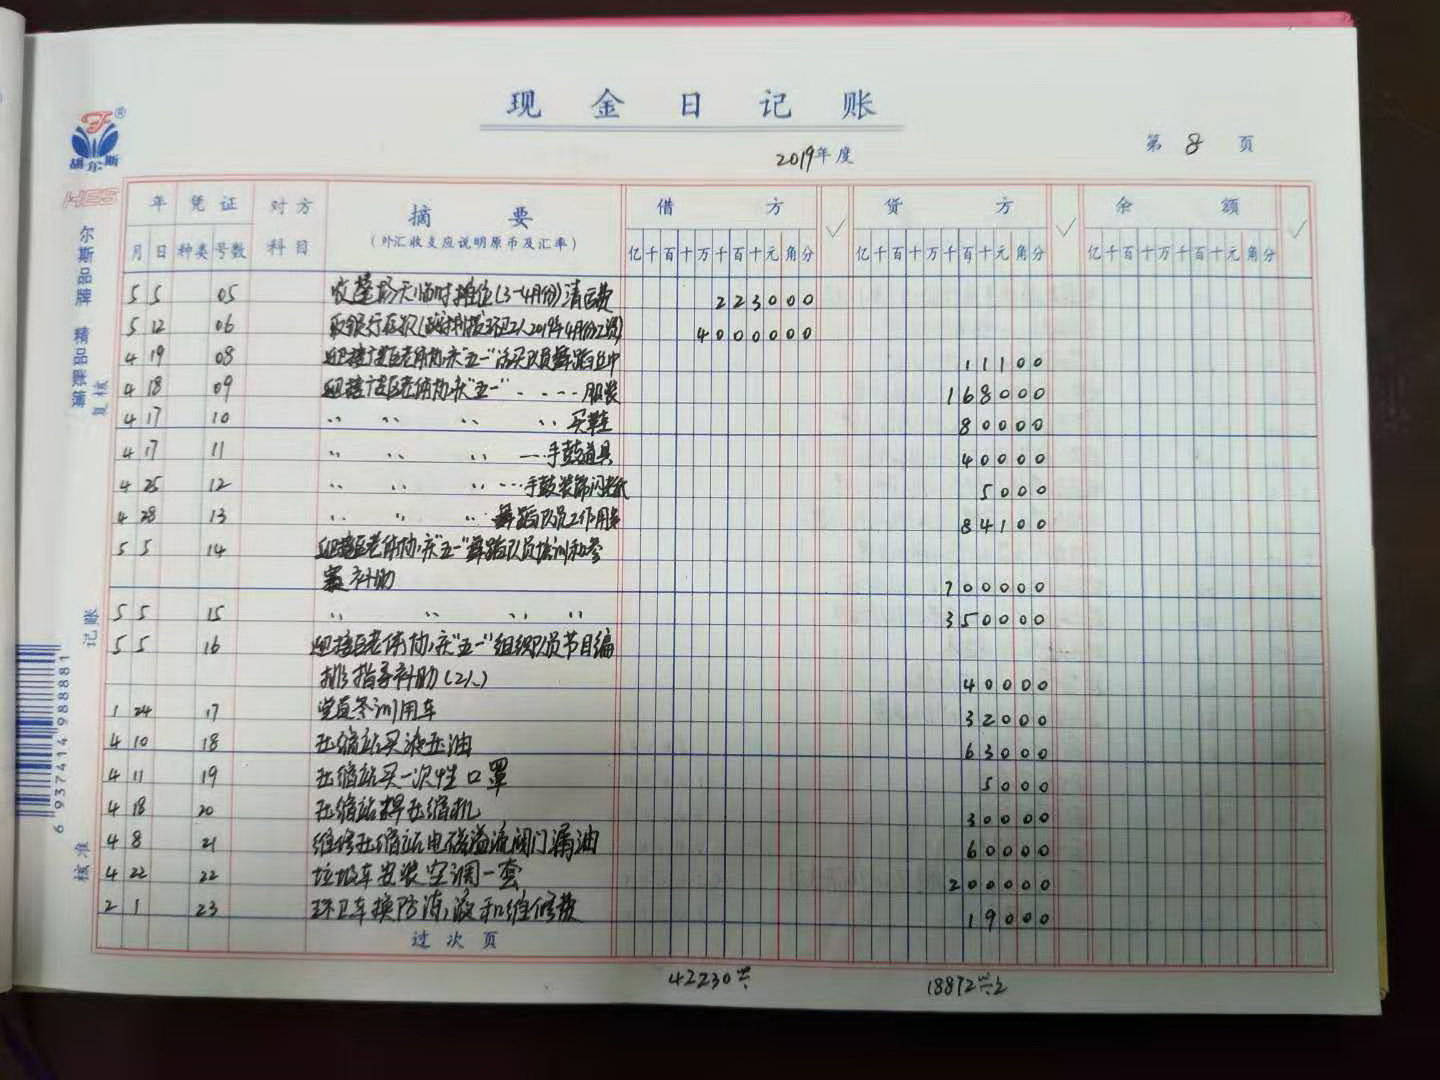 现金日记账
2019年度
第 8 页
胡尔斯
HES
尔斯品牌 精品账簿
复核
记账
核准
6 937414 988881
年 凭证 对方科目 摘要 借方 ✓ 贷方 ✓ 余额 ✓
月 日 种类 号数 (外汇收支应说明原币及汇率) 亿千百十万千百十元角分 亿千百十万千百十元角分 亿千百十万千百十元角分
5 5 05 收 临时摊位(3-4月份)清运费 223000
5 12 06 取银行存款(环卫工人2019年4月份工资) 4000000
4 19 08 迎接 老体协庆"五一" 队员舞蹈 11100
4 18 09 迎接 老体协庆"五一" 服装 168000
4 17 10 〃 〃 〃 〃 买鞋 80000
4 17 11 〃 〃 〃 手鼓道具 40000
4 25 12 〃 〃 〃 手鼓装饰闪光纸 5000
4 28 13 〃 〃 〃 舞蹈队员工作用餐 84100
5 5 14 迎接区老体协庆"五一"舞蹈队员培训和参
赛补助 700000
5 5 15 〃 〃 〃 〃 350000
5 5 16 迎接区老体协庆"五一"组织队员节目编
排指导补助(2人) 40000
1 24 17 党员冬训用车 32000
4 10 18 压缩站买液压油 63000
4 11 19 压缩站买一次性口罩 5000
4 18 20 压缩站焊压缩机 30000
4 8 21 维修压缩站电磁溢流阀门漏油 60000
4 22 22 垃圾车安装空调一套 200000
2 1 23 环卫车换防冻液和维修费 19000
过次页
42230 18872